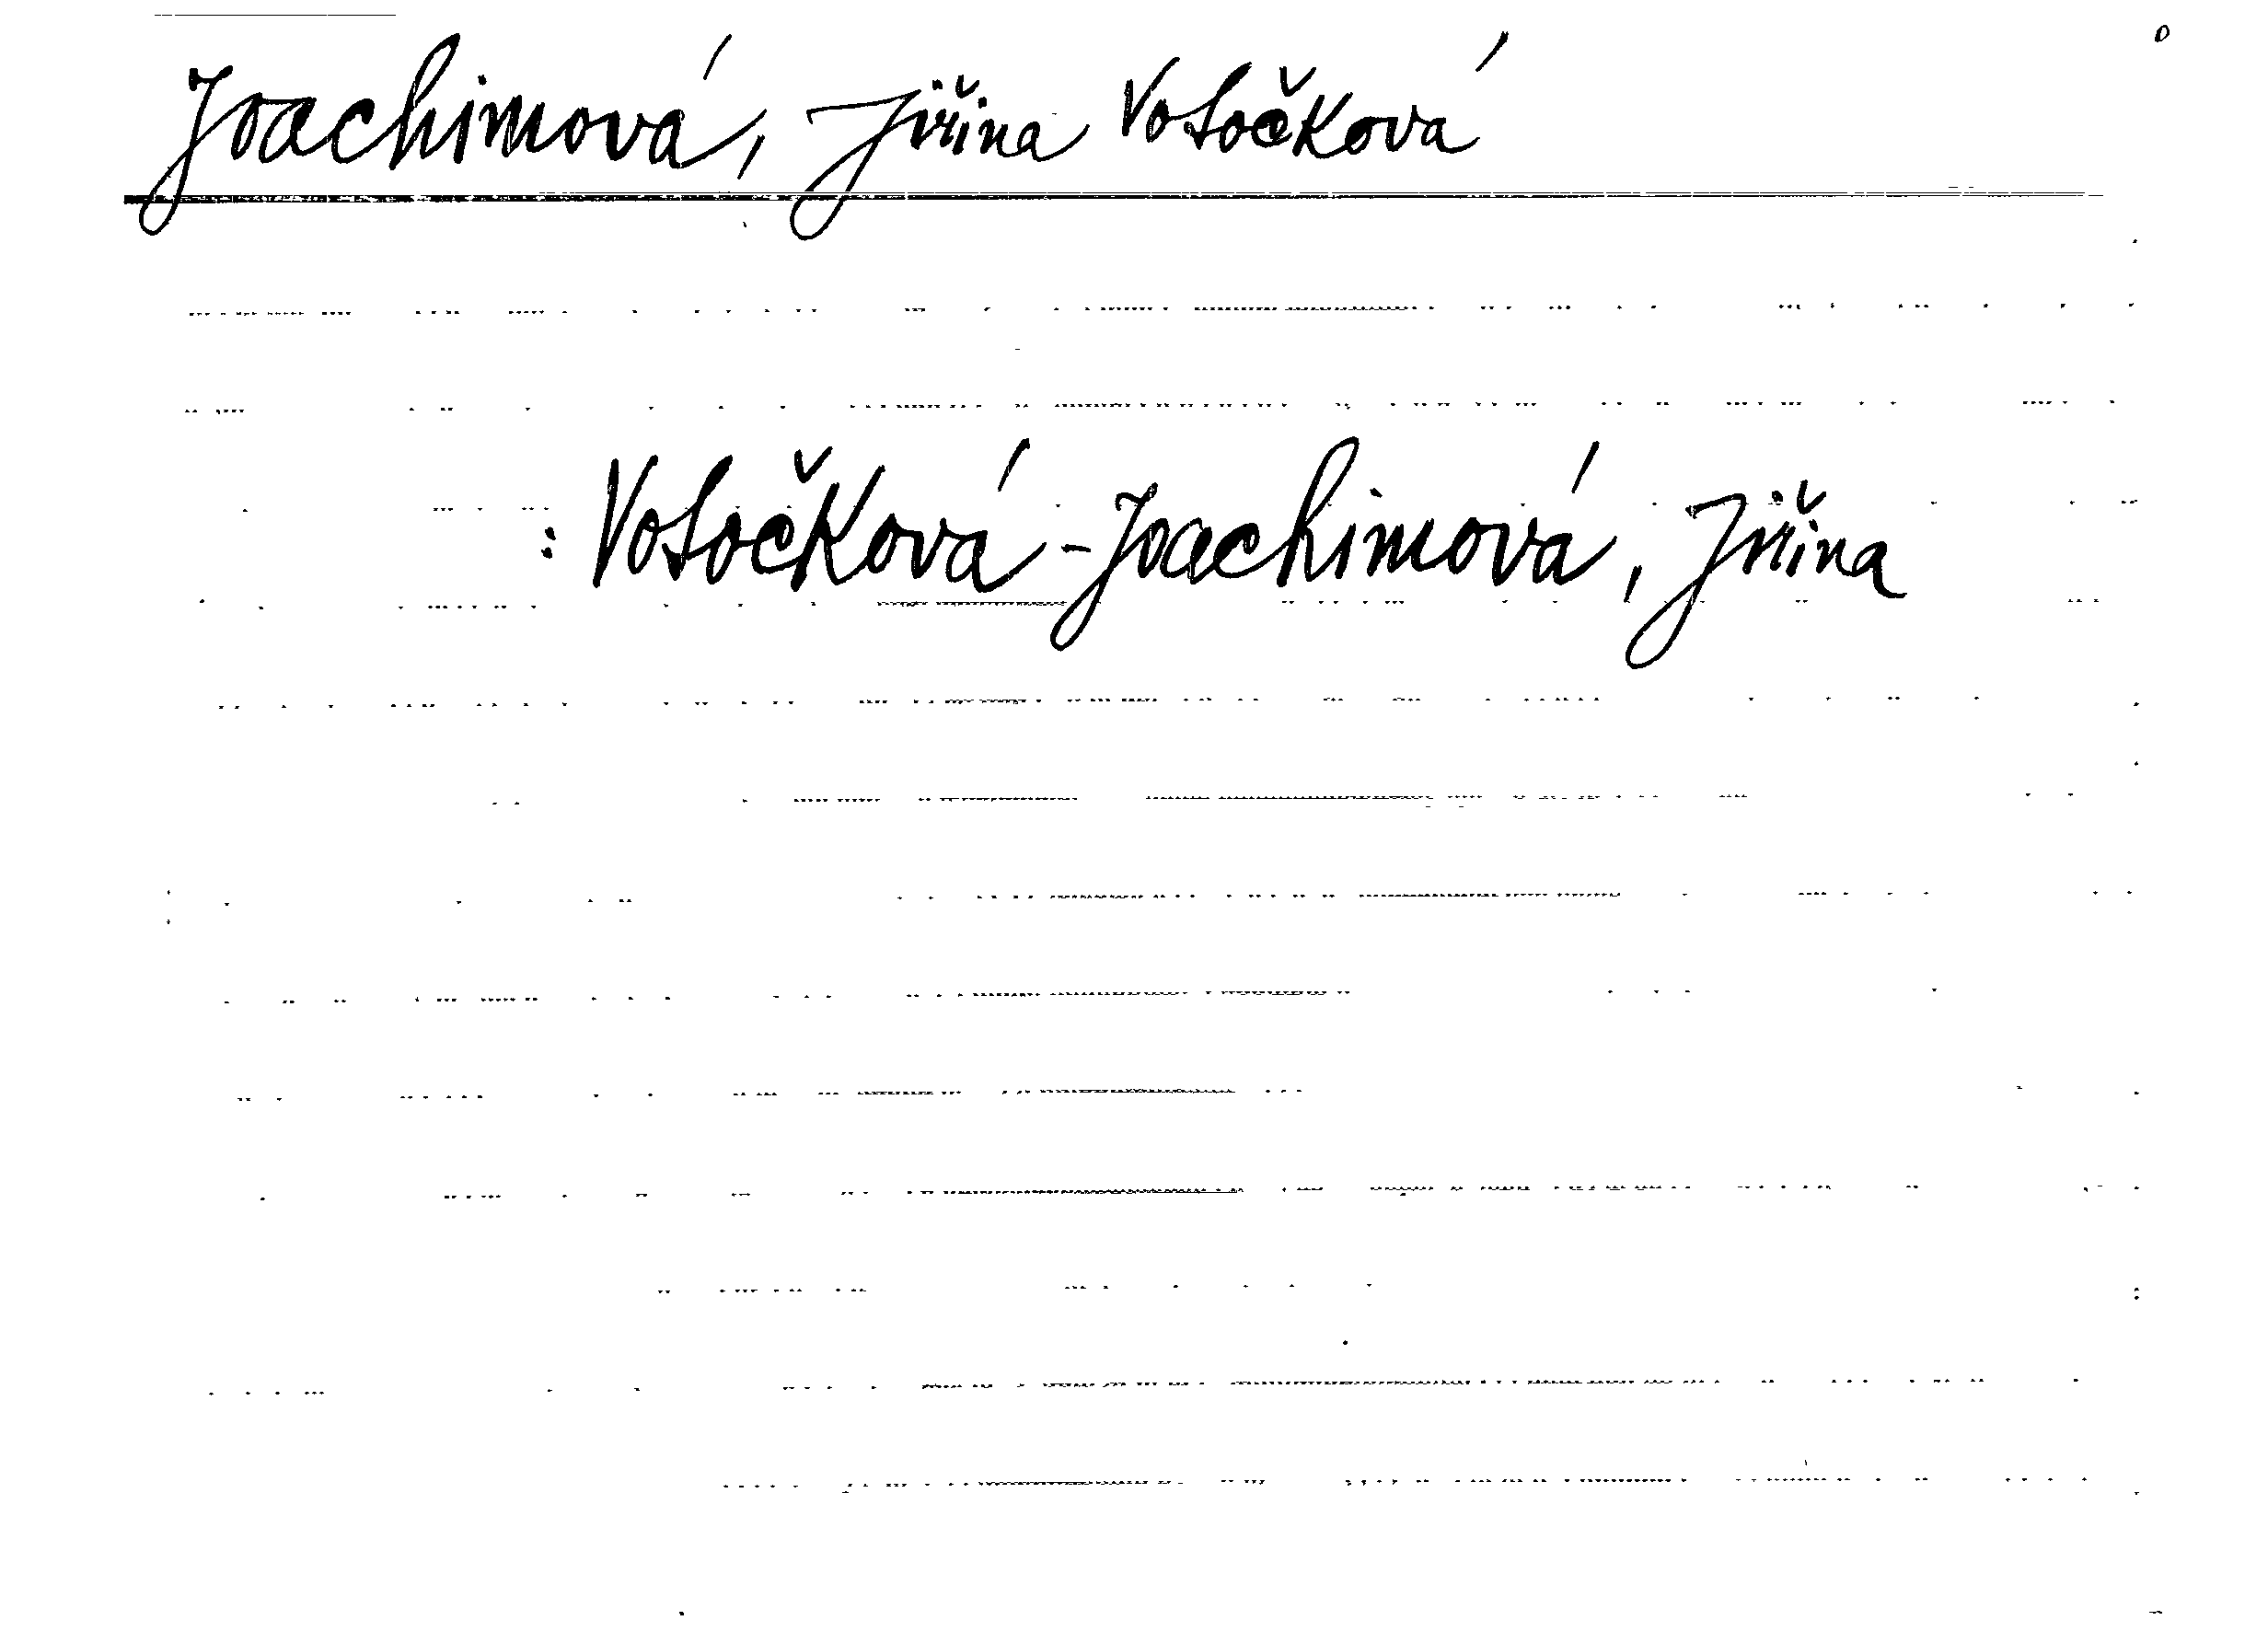 Joachimová, Jiřina Votočková
: Votočková-Joachimová, Jiřina